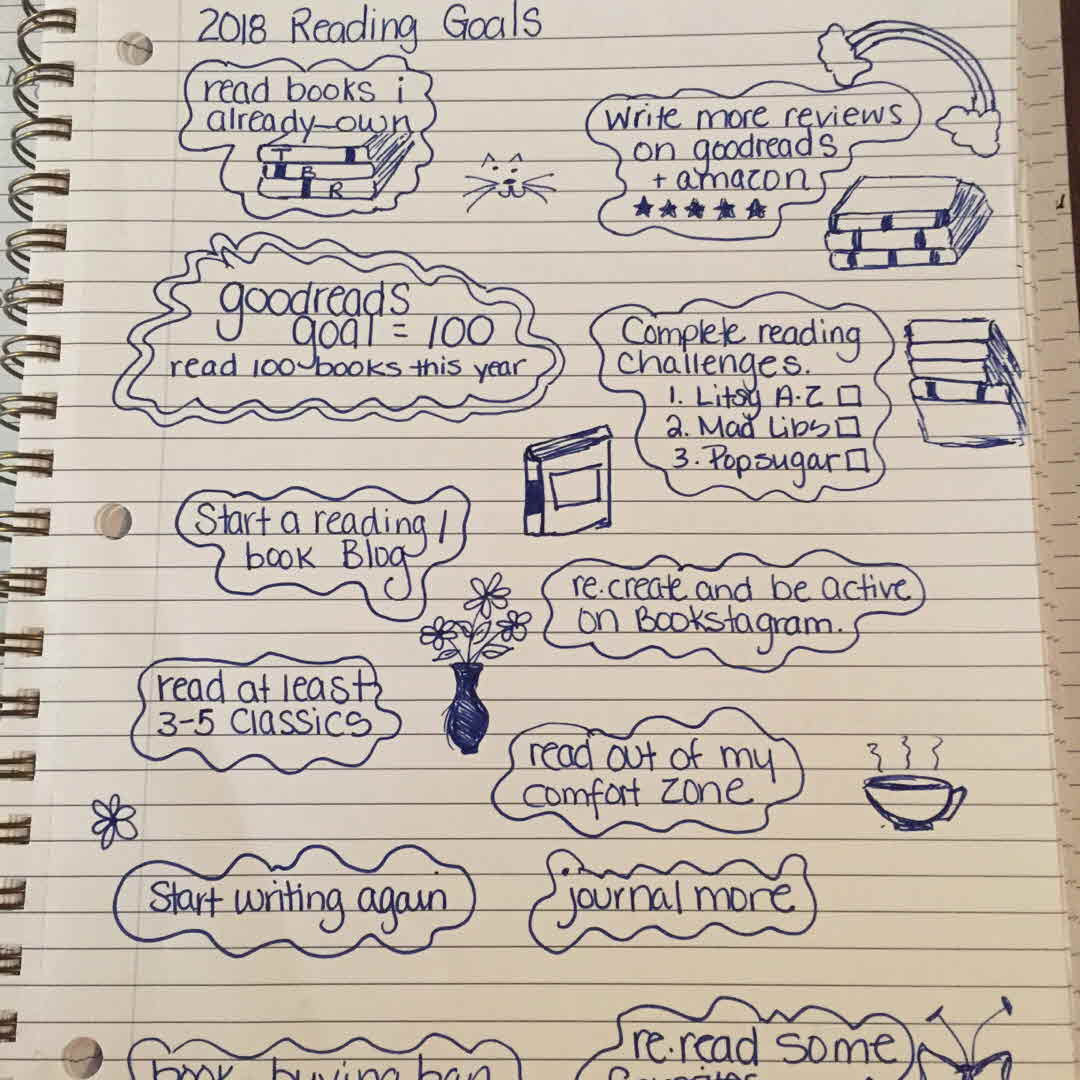 2018 Reading Goals
read books i
already own
T
B
R
write more reviews
on goodreads
+ amazon
goodreads
goal = 100
read 100 books this year
Complete reading
challenges.
1. Litsy A-Z
2. Mad Libs
3. Popsugar
Start a reading /
book Blog
re-create and be active
on Bookstagram.
read at least
3-5 Classics
read out of my
comfort zone
Start writing again
journal more
re-read some
book buying ban